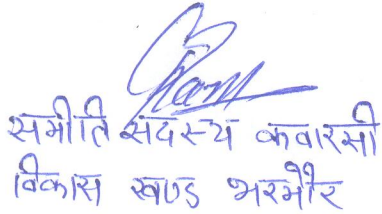 समीति सदस्य कवारसी
विकास खण्ड भरमौर